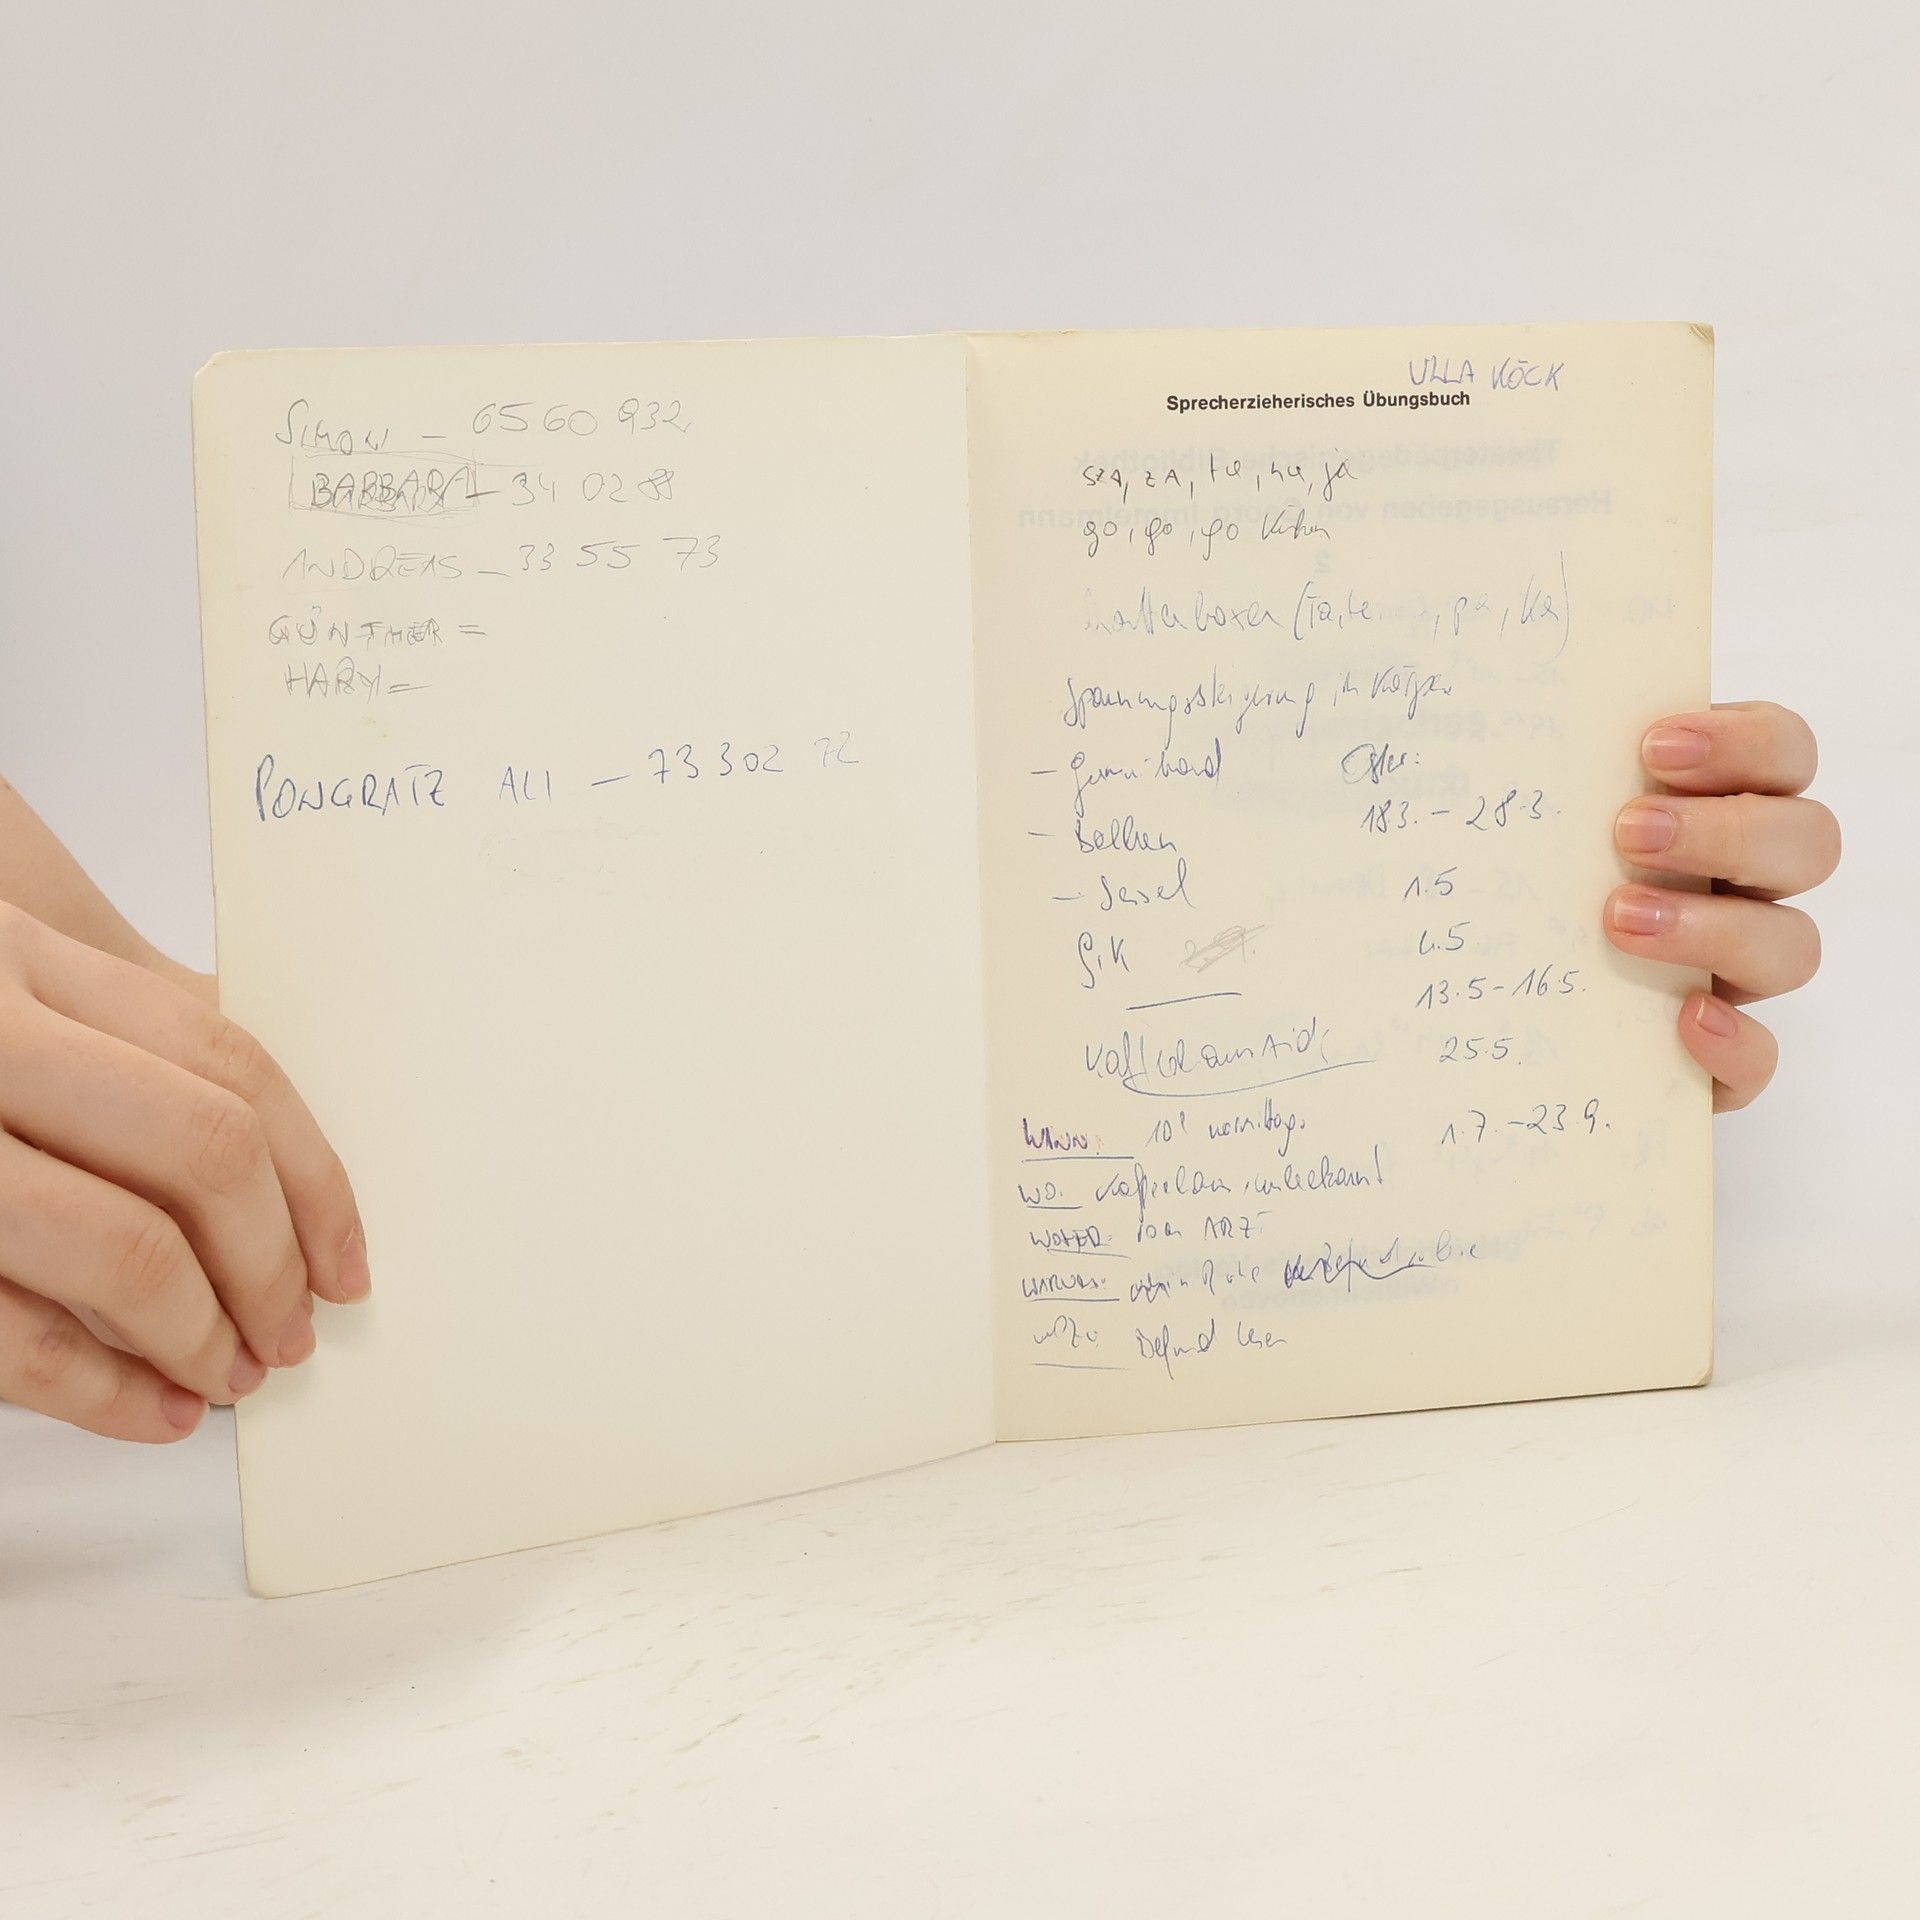 SIMON – 65 60 932
BARBARA – 34 02 88
ANDREAS – 33 55 73
GÜNTHER =
HARY =
PONGRATZ ALI – 73 302 72
ULLA KÖCK
Sprecherzieherisches Übungsbuch
sza, za, ta, na, ja
go, go, go
boxen (Ta, te, pa, ka)
Spannungssteigerung im Körper
– Gummiband Oster:
18.3. – 28.3.
– Balken
– Sessel 1.5
G, K 4.5
13.5 – 16.5.
25.5.
WANN: vormittags
1.7. – 23.9.
WO: Kaffeehaus, unbekannt
WOHER: vom ARZT
WARUM: in Ruhe
Befund lesen